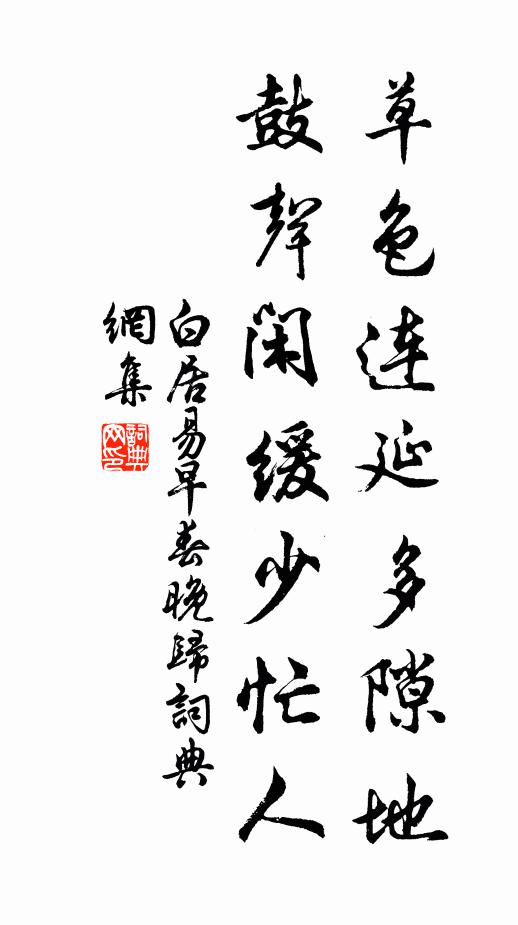 草色連延多隙地
鼓聲閑緩少忙人
白居易早春晚歸詞典
網集
詞典網印